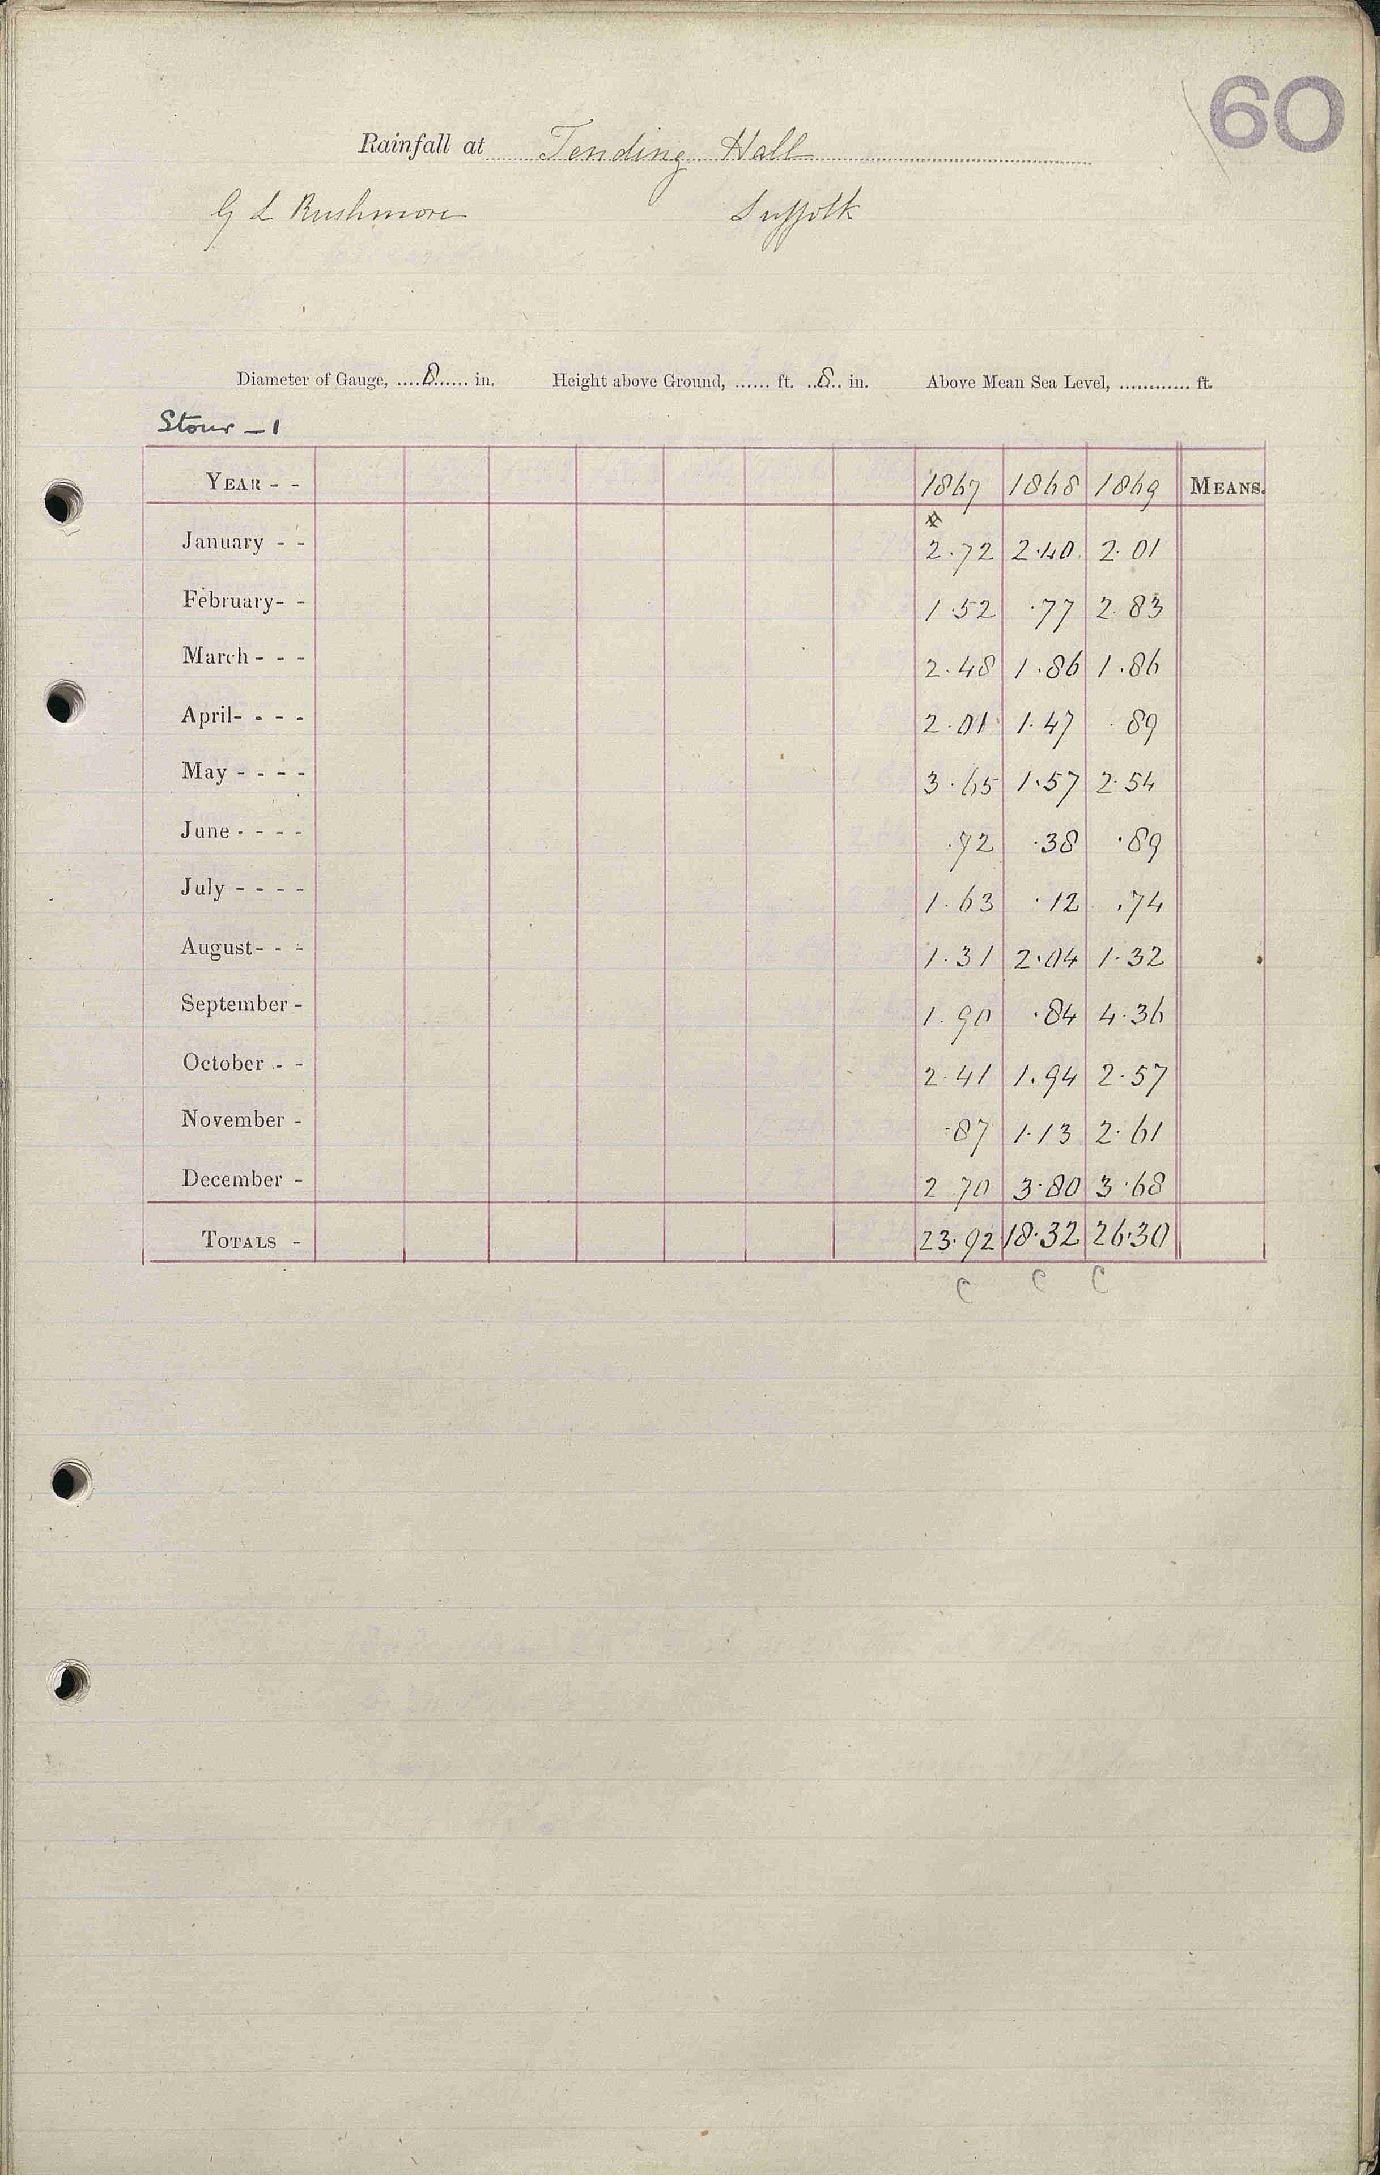 60
Rainfall at Tending Hall
G L Rushmore Suffolk
Diameter of Gauge, 8 in. Height above Ground, ...... ft. 8 in. Above Mean Sea Level, ............ ft.
Stour - 1
YEAR - - 1867 1868 1869 MEANS.
January - - 2.72 2.40 2.01
February - - 1.52 .77 2.83
March - - - 2.48 1.86 1.86
April - - - - 2.01 1.47 .89
May - - - - 3.65 1.57 2.54
June - - - - .72 .38 .89
July - - - - 1.63 .12 .74
August - - - 1.31 2.04 1.32
September - 1.90 .84 4.36
October - - 2.41 1.94 2.57
November - .87 1.13 2.61
December - 2.70 3.80 3.68
TOTALS - 23.92 18.32 26.30
C C C